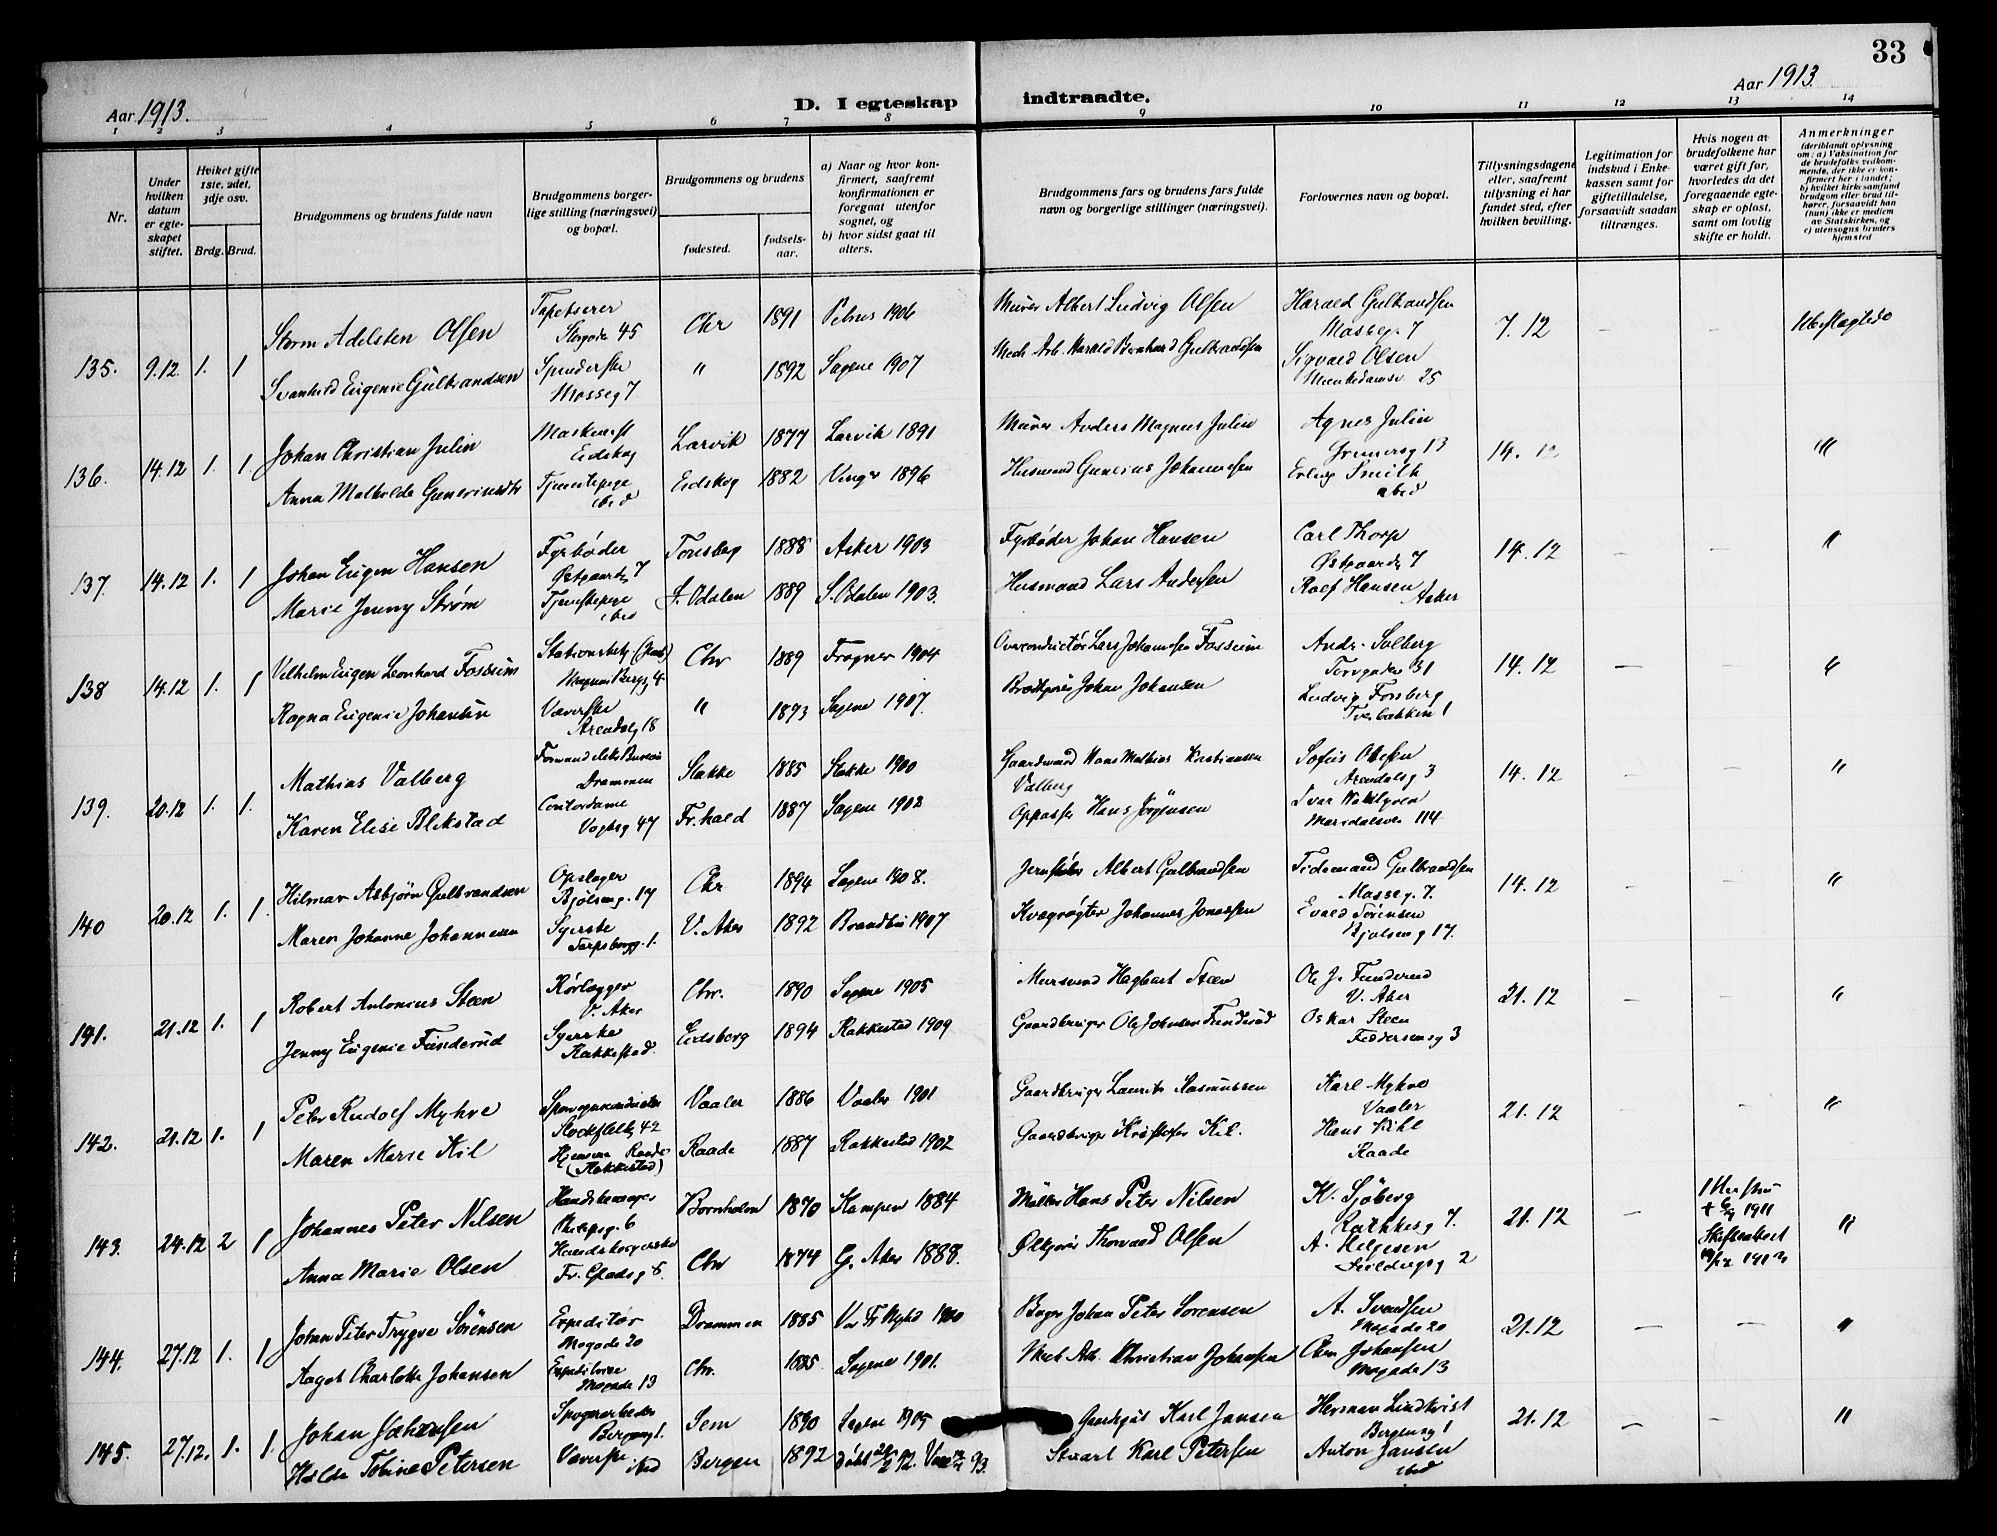 33
Aar 1913.
D. I egteskap
indtraadte.
Aar 1913.
1 2 3 4 5 6 7 8 9 10 11 12 13 14
Nr.
Under hvilken datum er egteskapet stiftet.
Hvilket gifte 1ste, 2det, 3dje osv.
Brdg. Brud.
Brudgommens og brudens fulde navn
Brudgommens borgerlige stilling (næringsvei) og bopæl.
Brudgommens og brudens
fødested.
fødselsaar.
a) Naar og hvor konfirmert, saafremt konfirmationen er foregaat utenfor sognet, og
b) hvor sidst gaat til alters.
Brudgommens fars og brudens fars fulde navn og borgerlige stillinger (næringsvei).
Forlovernes navn og bopæl.
Tillysningsdagene eller, saafremt tillysning ei har fundet sted, efter hvilken bevilling.
Legitimation for indskud i Enkekassen samt for giftetilladelse, forsaavidt saadan tiltrænges.
Hvis nogen av brudefolkene har været gift før, hvorledes da det foregaaende egteskap er opløst, samt om lovlig skifte er holdt.
Anmerkninger (deriblandt oplysning om: a) Vaksination for de brudefolks vedkommende, der ikke er konfirmert her i landet; b) hvilket kirkesamfund brudgom eller brud tilhører, forsaavidt han (hun) ikke er medlem av Statskirken, og c) utensogns bruders hjemsted
135. 9.12 1. 1
Storm Adelsten Olsen Tapetserer Storgade 45 Chr 1891 Petrus 1906 Murer Albert Ludvig Olsen Harald Gulbrandsen Mosseg. 7 7.12 – – Ubeslagtede
Svanhild Eugenie Gulbrandsen Spinderske Mosseg 7 " 1892 Sagene 1907 Mek. Arb. Harald Bernhard Gulbrandsen Sigvald Olsen Munkedamsv 25
136. 14.12 1. 1.
Johan Christian Julin Eidskog Larvik 1877 Larvik 1891 Murer Anders Magnus Julin Agnes Julin Grunersg 13 14.12 "
Anna Mathilde Tjenestepige ibid Eidskog 1882 Vinger 1896 Husmand Gunerius Johannesen Erling Smith ibid
137. 14.12 1. 1
Johan Eugen Hansen Fyrbøder Østgaardsg 7 Tønsberg 1888 Asker 1903 Fyrbøder Johan Hansen Carl Thorp Østgaardsg 7 14.12 – – "
Marie Jenny Strøm Tjenestepige ibid S. Odalen 1889 S. Odalen 1903. Husmand Lars Andersen Rolf Hansen Asker
138 14.12 1. 1
Vilhelm Eugen Leonhard Fossum Magnus Bergsg 4 Chr 1889 Frogner 1904 Overconductør Lars Johannesen Fossum Andr. Solberg Torvgaden 31 14.12 – – "
Ragna Eugenie Johansen Væverske Arendalsg 18 " 1893 Sagene 1907. Johan Johansen Ludvig Forsberg Tverbakken 1
139. 20.12 1. 1.
Mathias Valberg Drammen Slakke 1885 Slakke 1900 Gaardmand Hans Mathias Kristiansen Valberg Sofus Olsen Arendalsg 3 14.12 – – "
Karen Elise Blikstad Contordame Vogtsg 47 Fr.hald 1887 Sagene 1902 Oppasser Hans Jörgensen Ivar Maridalsvei 114
140 20.12 1. 1.
Hilmar Asbjørn Gulbrandsen Opslager Bjølseng. 17 Chr 1894 Sagene 1908. Albert Gulbrandsen Tidemand Gulbrandsen Mosseg. 7. 14.12 – – "
Maren Johanne Johannesen Syerske Torpsborgg. 1. V. Aker 1892 Brandbu 1907 Kvægrøgter Johannes Jonassen Evald Sørensen Bjølseng 17.
141. 21.12 1. 1
Robert Antonius Steen Rørlægger V. Aker Chr. 1890 Sagene 1905 Hagbart Steen Ole J. Funderud V. Aker 21.12 – – "
Jenny Eugenie Funderud Syerske Rakkestad. Eidsberg 1894 Rakkestad 1909 Gaardbruger Ole Johnsen Funderud Oskar Steen Feddersensg 3
142. 21.12 1. 1
Peter Rudolf Myhre Stockfletsg 42 Vaaler 1886 Vaaler 1901 Gaardbruger Laurits Rasmussen Karl Myhre Vaaler 21.12 – – "
Maren Marie Kil Hjemme Raade (Rakkestad) Raade 1887 Rakkestad 1902 Gaardbruger Kristofer Kil. Hans Kihl Raade
143. 24.12 2 1
Johannes Peter Nilsen Handskemager Bornholm 1870 Kampen 1884 Møller Hans Peter Nilsen K. Sjöberg Rathkesg 7. 21.12 – "
Anna Marie Olsen Fr. Gladsg 8. Chr 1874 G. Aker 1888. Ølkjører Thorvald Olsen A. Helgesen
144. 27.12 1. 1
Johan Peter Trygve Sörensen Expeditør Mogade 20 Drammen 1885 Johan Peter Sorensen A. Svendsen Mogade 20 21.12 – – "
Aagot Charlotte Johansen Mogade 13 Chr. 1885 Sagene 1901. Mek. Arb. Christian Johansen Chr. Johansen Mogade 13
145. 27.12. 1. 1.
Johan Sporveisarbeider Bergensg 1. Sem 1890 Sagene 1905 Karl Jansen Herman Lindkvist Bergensg 1 21.12 – – "
Hilda Tobine Petersen Væverske ibid Bergen 1892 Stuart Karl Petersen Anton Jansen ibid